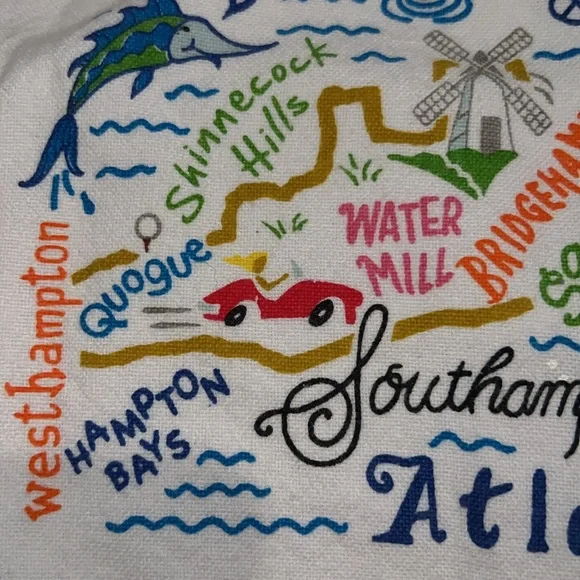 Shinnecock
Hills
WATER
MILL
BRIDGEHAM
Quogue
westhampton
HAMPTON
BAYS
Southam
Atl